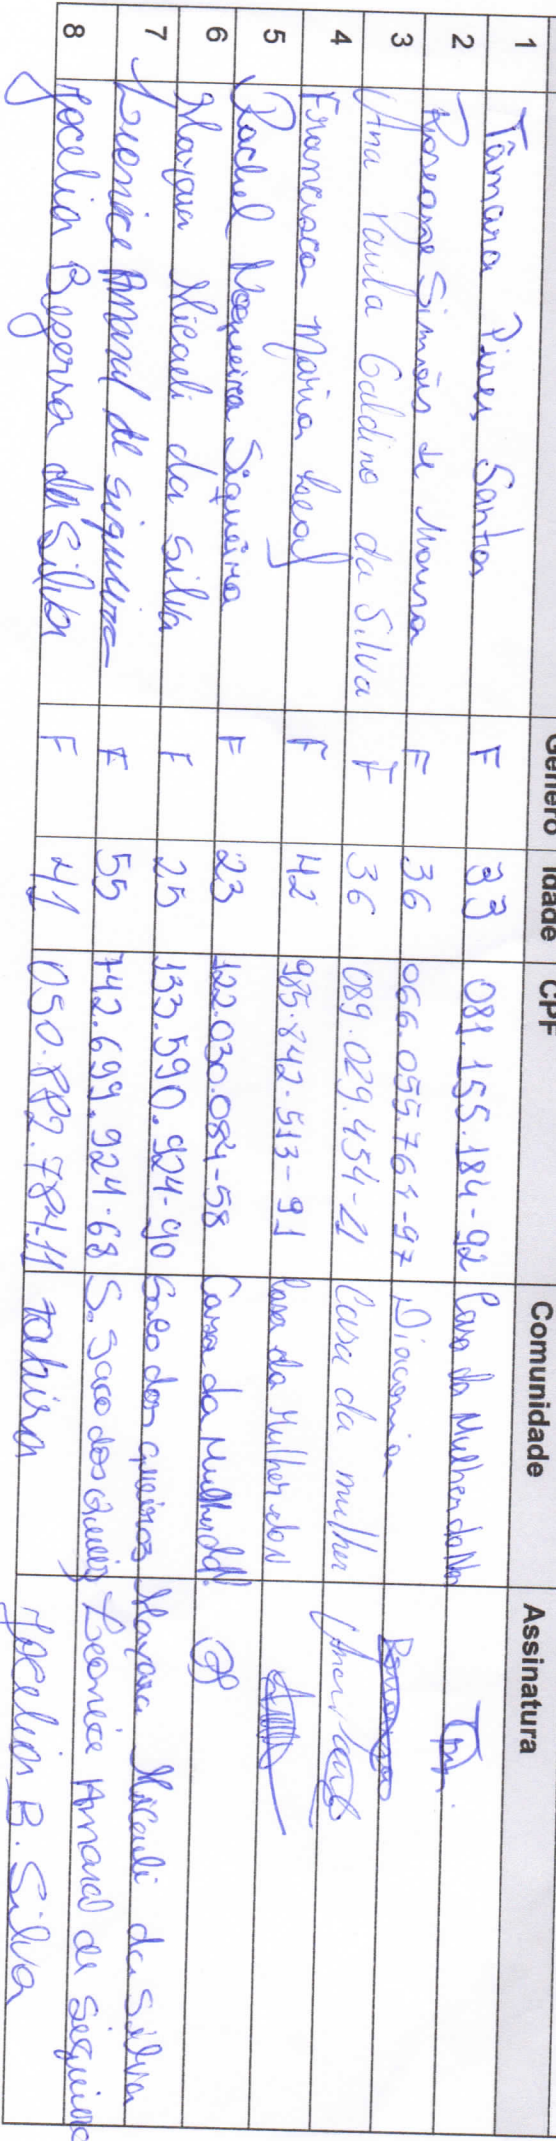 Gênero Idade CPF Comunidade Assinatura
1 Tâmara Pires Santos F 33 081.155.184-92 Casa da Mulher do No
2 Roseane Simões de Moura F 36 066.055.764-97 Diaconia
3 Ana Paula Galdino da Silva F 36 089.029.454-21 Casa da mulher Ana Paula
4 Francisca Maria Leal F 42 985.842.513-91 Casa da Mulher do N
5 Rachel Nogueira Siqueira F 23 122.030.084-58 Casa da Mulher do N
6 Mayara Micaeli da Silva F 25 133.590.924-90 Saco dos queiros Mayara Micaeli da Silva
7 Leonice Amaral de siqueira F 55 742.699.924-68 S. Saco dos Queiros Leonice Amaral de Sesqueira
8 Jocelia Bezerra da Silva F 41 050.882.784-11 Tabira Jocelia B. Silva